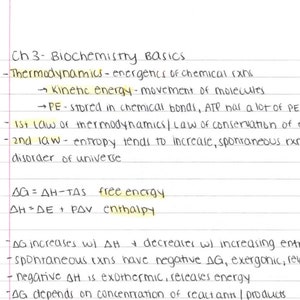 Ch 3- Biochemistry Basics
-Thermodynamics - energetics of chemical rxns
→ Kinetic energy - movement of molecules
→ PE - stored in chemical bonds, ATP has a lot of PE
- 1st law of thermodynamics/Law of conservation of
- 2nd law - entropy tends to increase, spontaneous rxn
disorder of universe
ΔG = ΔH-TΔS free energy
ΔH = ΔE + PΔV enthalpy
-ΔG increases w/ ΔH + decreases w/ increasing entr
- spontaneous rxns have negative ΔG, exergonic, rel
- negative ΔH is exothermic, releases energy
- ΔG depends on concentration of reactant / products